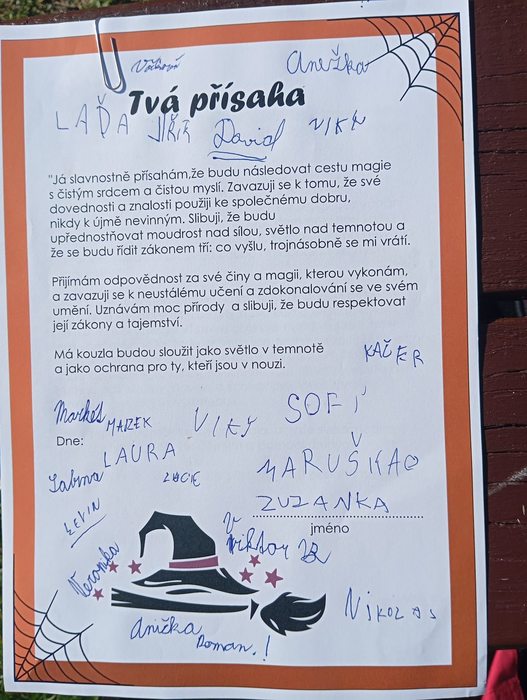 Anežka
Tvá přísaha
LAĎA JIŘÍK David VIKY
"Já slavnostně přísahám,že budu následovat cestu magie
s čistým srdcem a čistou myslí. Zavazuji se k tomu, že své
dovednosti a znalosti použiji ke společnému dobru,
nikdy k újmě nevinným. Slibuji, že budu
upřednostňovat moudrost nad sílou, světlo nad temnotou a
že se budu řídit zákonem tří: co vyšlu, trojnásobně se mi vrátí.
Přijímám odpovědnost za své činy a magii, kterou vykonám,
a zavazuji se k neustálému učení a zdokonalování se ve svém
umění. Uznávám moc přírody a slibuji, že budu respektovat
její zákony a tajemství.
Má kouzla budou sloužit jako světlo v temnotě
a jako ochrana pro ty, kteří jsou v nouzi.
KAČER
SOFÍ
MAREK VIKY
Dne:
LAURA
MARUŠKAO
Sabina LUCIE
ZUZANKA
jméno
Viktor
Veronika
NIKOLAS
Anička
Roman.!